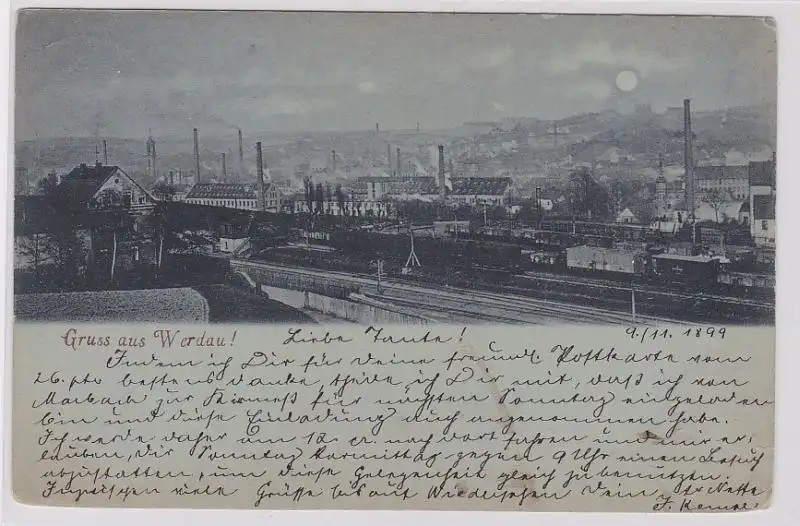 Gruss aus Werdau!
Liebe Tante! 9./11. 1899
Indem ich Dir für Deine freundl. Postkarte vom
26. pto bestens danke, theile ich Dir mit, daß ich von
Marbach zur Kirmeß für nächsten Sonntag eingeladen
bin und diese Einladung auch angenommen habe.
Ich werde daher am 12. cr. nach dort fahren und mir er-
lauben, Dir Sonntag Vormittag gegen 9 Uhr einen Besuch
abzustatten, um diese Gelegenheit gleich zu benutzen.
Inzwischen viele Grüße bis auf Wiedersehen Dein Neffe